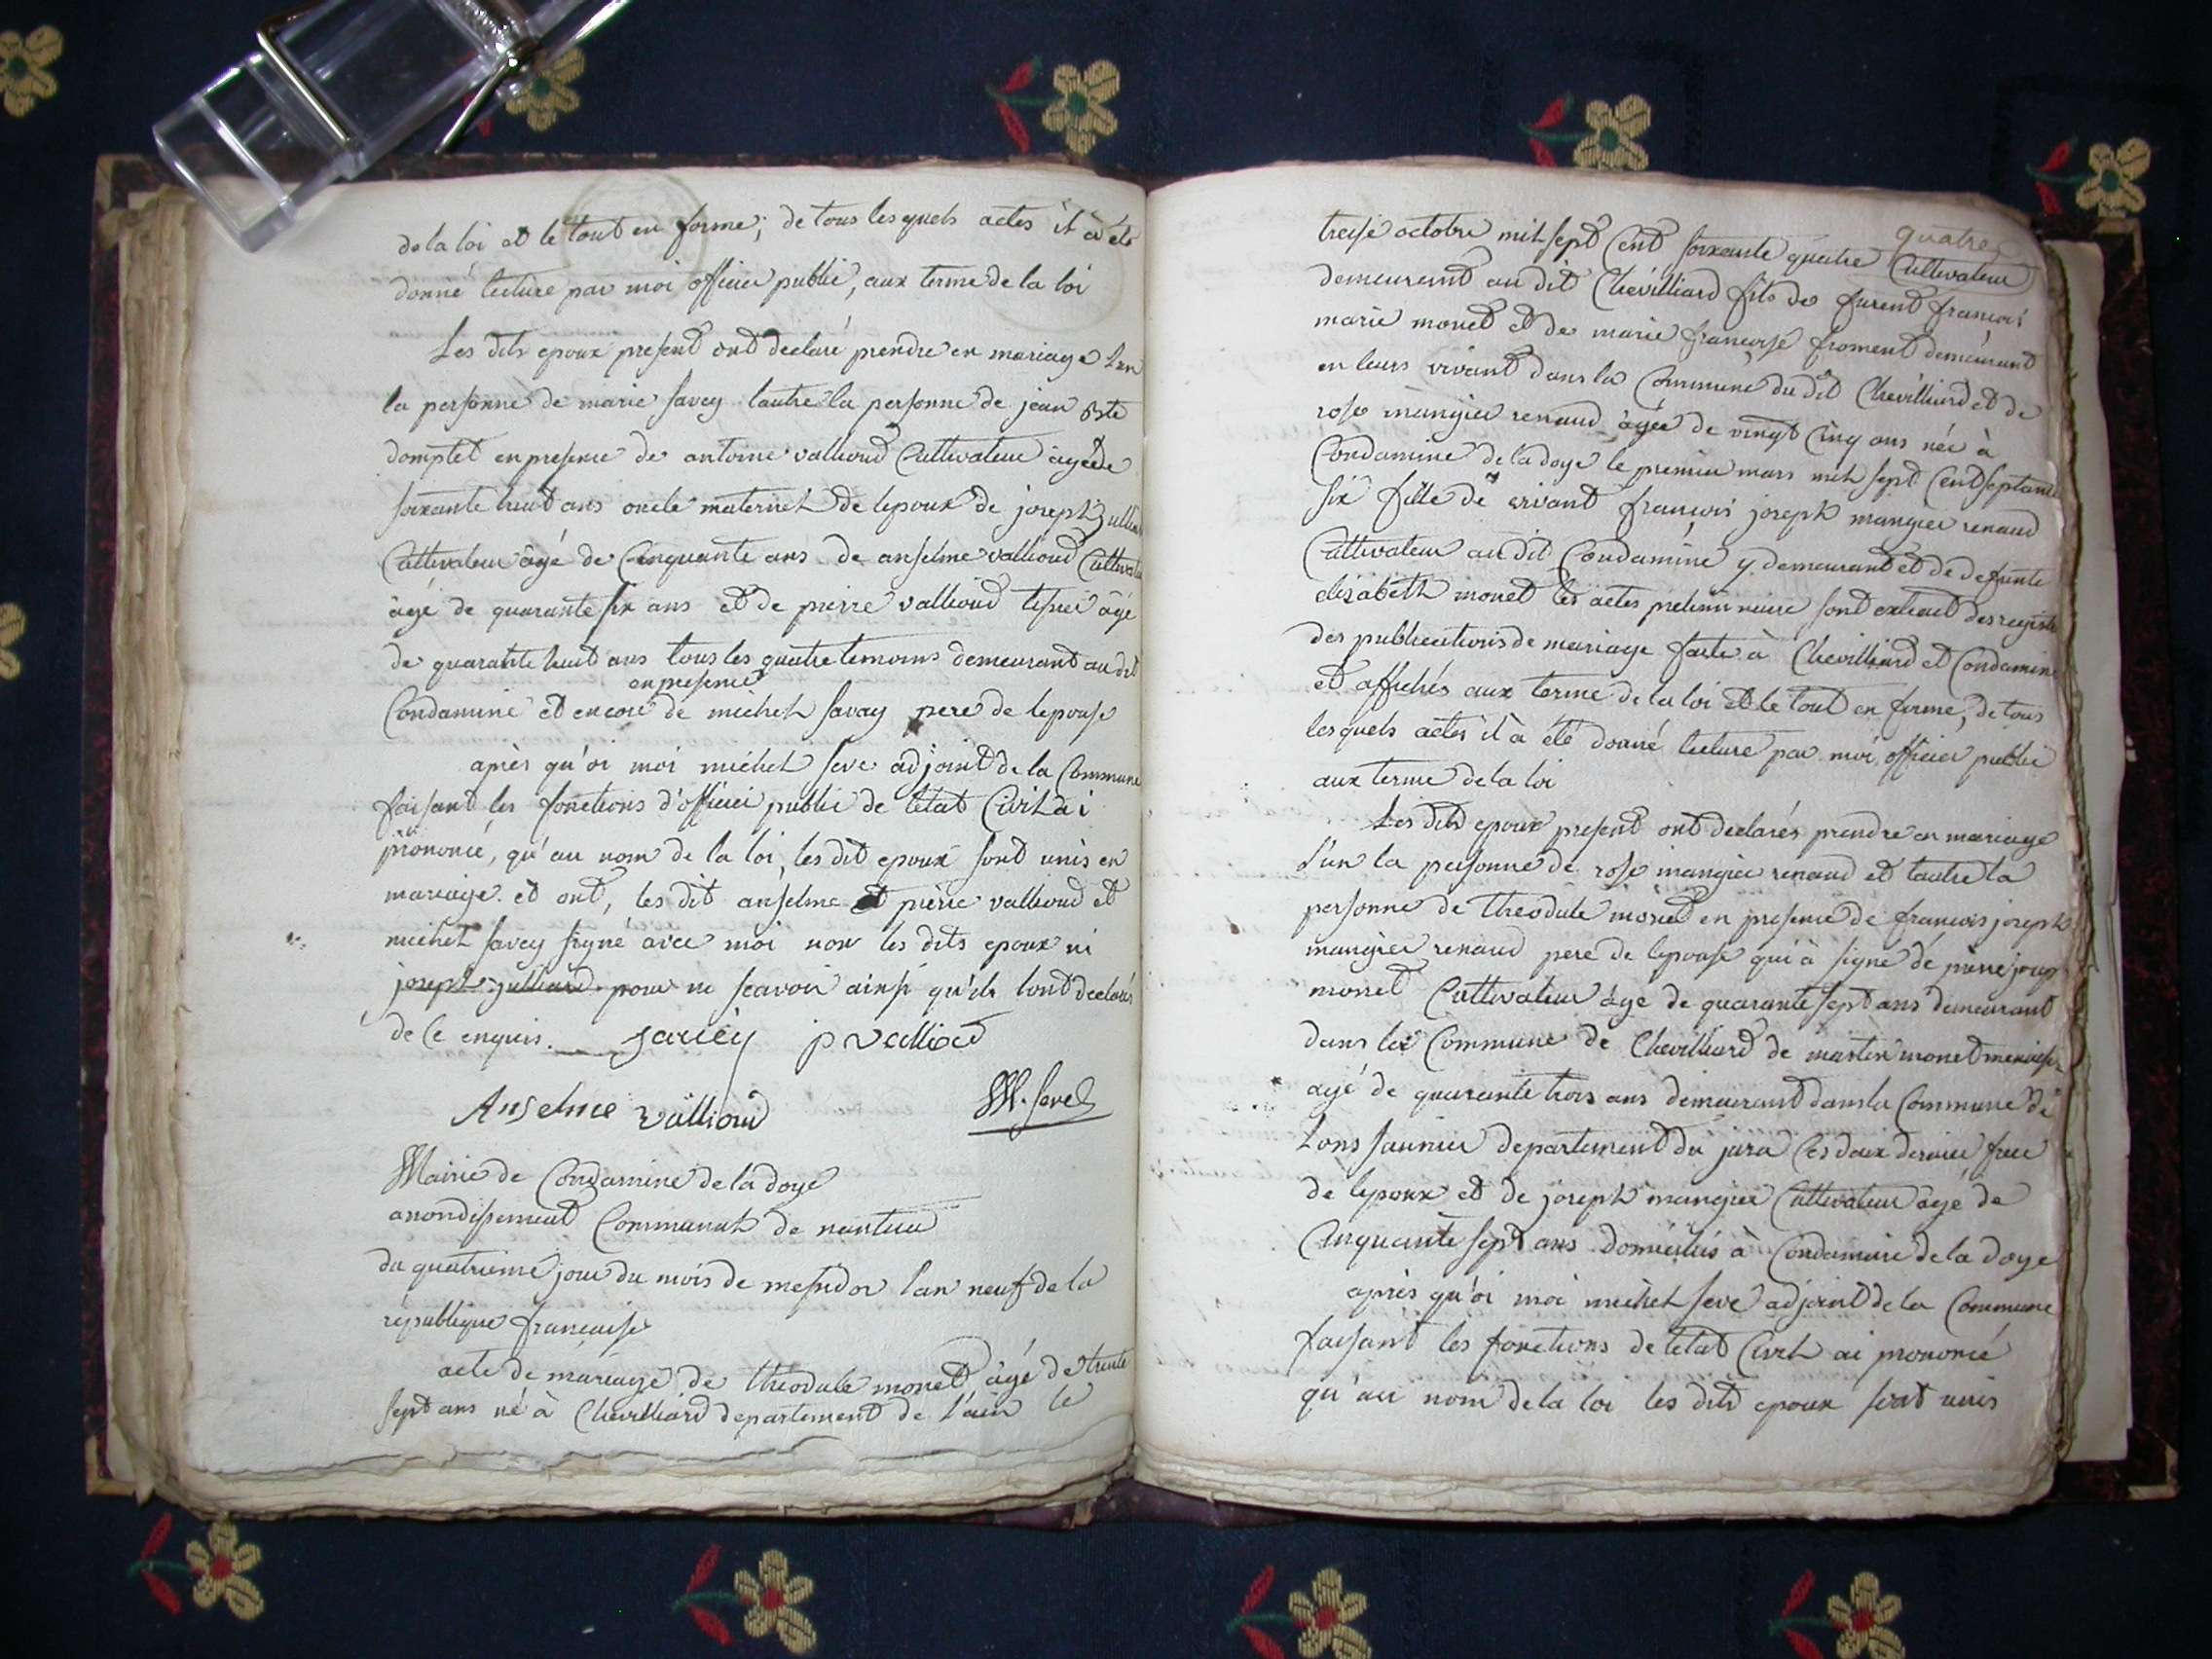 de la loi et le tout en forme, de tous lesquels actes il à été
donné lecture par moi officier public, aux terme de la loi
Les dits epoux present ont declaré prendre en mariage l'un
la personne de marie savey lautre la personne de jean
domptet en presence de antoine vallioud Cultivateur agé de
soixante huit ans oncle maternel de lepoux de joseph julliard
Cultivateur âgé de Cinquante ans de anselme vallioud Cultivateur
âgé de quarante six ans et de pierre vallioud âgé
de quarante huit ans tous les quatre temoins demeurant au dit
en presence
Condamine et encore de michel savay pere de lepouse
après qu'oi moi michel seve adjoint de la Commune
faisant les fonctions d'officier public de letat Civil ai
prononcé, qu'au nom de la loi, les dit epoux sont unis en
mariage. et ont, les dit anselme et pierre vallioud et
michel savey signé avec moi non les dits epoux ni
joseph julliard pour ne scavoir ainsi qu'ils l'ont declarés
de ce enquis. p vallioud
Anselme vallioud M. Seve
Mairie de Condamine de la doye
arrondissement Communal de nantua
du quatrieme jour du mois de messidor lan neuf de la
république francaise
acte de mariage de theodule monet âgé de trente
sept ans né à Chevilliard departement de l'ain le
quatre
treise octobre mil sept Cent soixante quatre Cultivateur
demeurant au dit Chevilliard fils de furent francois
marie monet et de marie francoise froment demeurant
en leurs vivant dans la Commune du dit Chevilliard et de
rose mangier renaud âgée de vingt Cinq ans née à
Condamine de la doye le premier mars mil sept Cent septante
six fille de vivant francois joseph mangier renaud
Cultivateur au dit Condamine y demeurant et de defunte
elizabeth monet les actes preliminaire sont extrait des registre
des publications de mariage faite à Chevilliard et Condamine
et affichés aux terme de la loi et le tout en forme, de tous
lesquels actes il à été donné lecture par moi officier public
aux terme de la loi
Les dits epoux present ont declarés prendre en mariage
l'un la personne de rose mangier renaud et lautre la
personne de theodule monet en presence de francois joseph
mangier renaud pere de lepouse qui à signé de pierre joseph
monet Cultivateur âge de quarante sept ans demeurant
dans la Commune de Chevilliard de martin monet menuisier
agé de quarante trois ans demeurant dans la Commune de
Lons saunier departement du jura les deux dernier frere
de lepoux et de joseph mangier Cultivateur âgé de
Cinquante sept ans domiciliés à Condamine de la doye
après qu'oi moi michel seve adjoint de la Commune
faisant les fonctions de letat Civil ai prononcé
qu'au nom de la loi les dits epoux sont unis